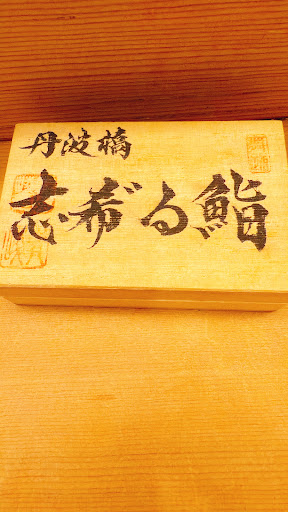 丹波橋
志希゛る鮨